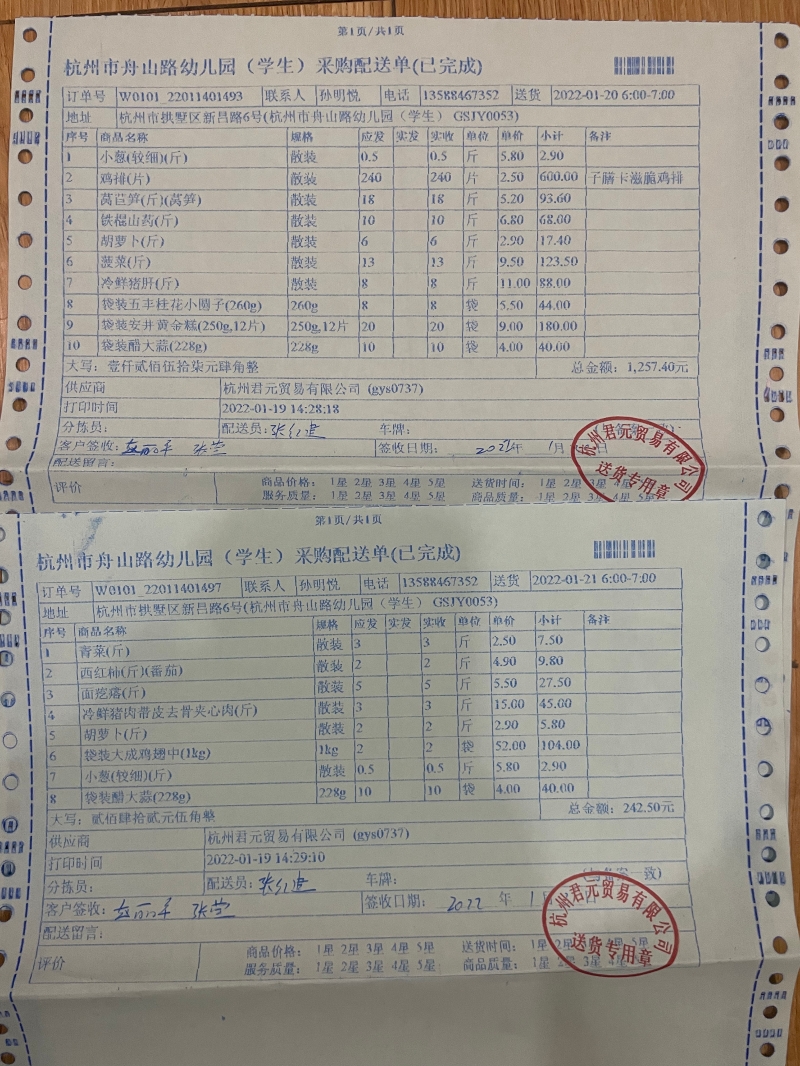 第1页/共1页
杭州市舟山路幼儿园（学生）采购配送单(已完成)
订单号 W0101_22011401493 联系人 孙明悦 电话 13588467352 送货 2022-01-20 6:00-7:00
地址 杭州市拱墅区新昌路6号(杭州市舟山路幼儿园（学生） GSJY0053)
序号 商品名称 规格 应发 实发 实收 单位 单价 小计 备注
1 小葱(较细)(斤) 散装 0.5 0.5 斤 5.80 2.90
2 鸡排(片) 散装 240 240 片 2.50 600.00 子腾卡滋脆鸡排
3 莴苣笋(斤)(莴笋) 散装 18 18 斤 5.20 93.60
4 铁棍山药(斤) 散装 10 10 斤 6.80 68.00
5 胡萝卜(斤) 散装 6 6 斤 2.90 17.40
6 菠菜(斤) 散装 13 13 斤 9.50 123.50
7 冷鲜猪肝(斤) 散装 8 8 斤 11.00 88.00
8 袋装五丰桂花小圆子(260g) 260g 8 8 袋 5.50 44.00
9 袋装安井黄金糕(250g,12片) 250g,12片 20 20 袋 9.00 180.00
10 袋装醋大蒜(228g) 228g 10 10 袋 4.00 40.00
大写：壹仟贰佰伍拾柒元肆角整 总金额：1,257.40元
供应商 杭州君元贸易有限公司 (gys0737)
打印时间 2022-01-19 14:28:18
分拣员： 配送员：张红建 车牌：
客户签收： 签收日期： 2022年 1月 日
配送留言：
评价 商品价格： 1星 2星 3星 4星 5星 送货时间： 1星 2星 3星 4星
服务质量： 1星 2星 3星 4星 5星 商品质量： 1星 2星 3星 4星 5星
杭州君元贸易有限公司
送货专用章
第1页/共1页
杭州市舟山路幼儿园（学生）采购配送单(已完成)
订单号 W0101_22011401497 联系人 孙明悦 电话 13588467352 送货 2022-01-21 6:00-7:00
地址 杭州市拱墅区新昌路6号(杭州市舟山路幼儿园（学生） GSJY0053)
序号 商品名称 规格 应发 实发 实收 单位 单价 小计 备注
1 青菜(斤) 散装 3 3 斤 2.50 7.50
2 西红柿(斤)(番茄) 散装 2 2 斤 4.90 9.80
3 面疙瘩(斤) 散装 5 5 斤 5.50 27.50
4 冷鲜猪肉带皮去骨夹心肉(斤) 散装 3 3 斤 15.00 45.00
5 胡萝卜(斤) 散装 2 2 斤 2.90 5.80
6 袋装大成鸡翅中(1kg) 1kg 2 2 袋 52.00 104.00
7 小葱(较细)(斤) 散装 0.5 0.5 斤 5.80 2.90
8 袋装醋大蒜(228g) 228g 10 10 袋 4.00 40.00
大写：贰佰肆拾贰元伍角整 总金额：242.50元
供应商 杭州君元贸易有限公司 (gys0737)
打印时间 2022-01-19 14:29:10
分拣员： 配送员：张红建 车牌：
客户签收： 签收日期： 2022 年 1
配送留言：
评价 商品价格： 1星 2星 3星 4星 5星 送货时间： 1星 2星 3星 4星 5星
服务质量： 1星 2星 3星 4星 5星 商品质量： 1星 2星 3星 4星 5星
杭州君元贸易有限公司
送货专用章